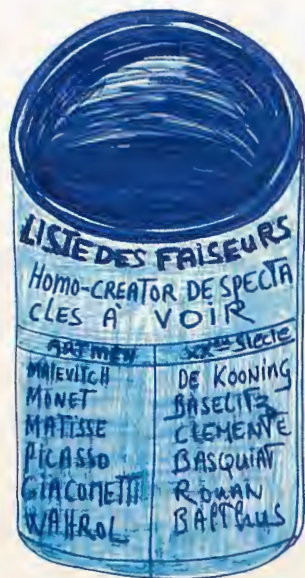 LISTE DES FAISEURS
HOMO-CREATOR DE SPECTA
CLES À VOIR
ARTMEN XXème Siècle
MALEVITCH DE KOONING
MONET BASELITZ
MATISSE CLEMENTE
PICASSO BASQUIAT
GIACOMETTI ROUAN
WAHROL BALTHUS